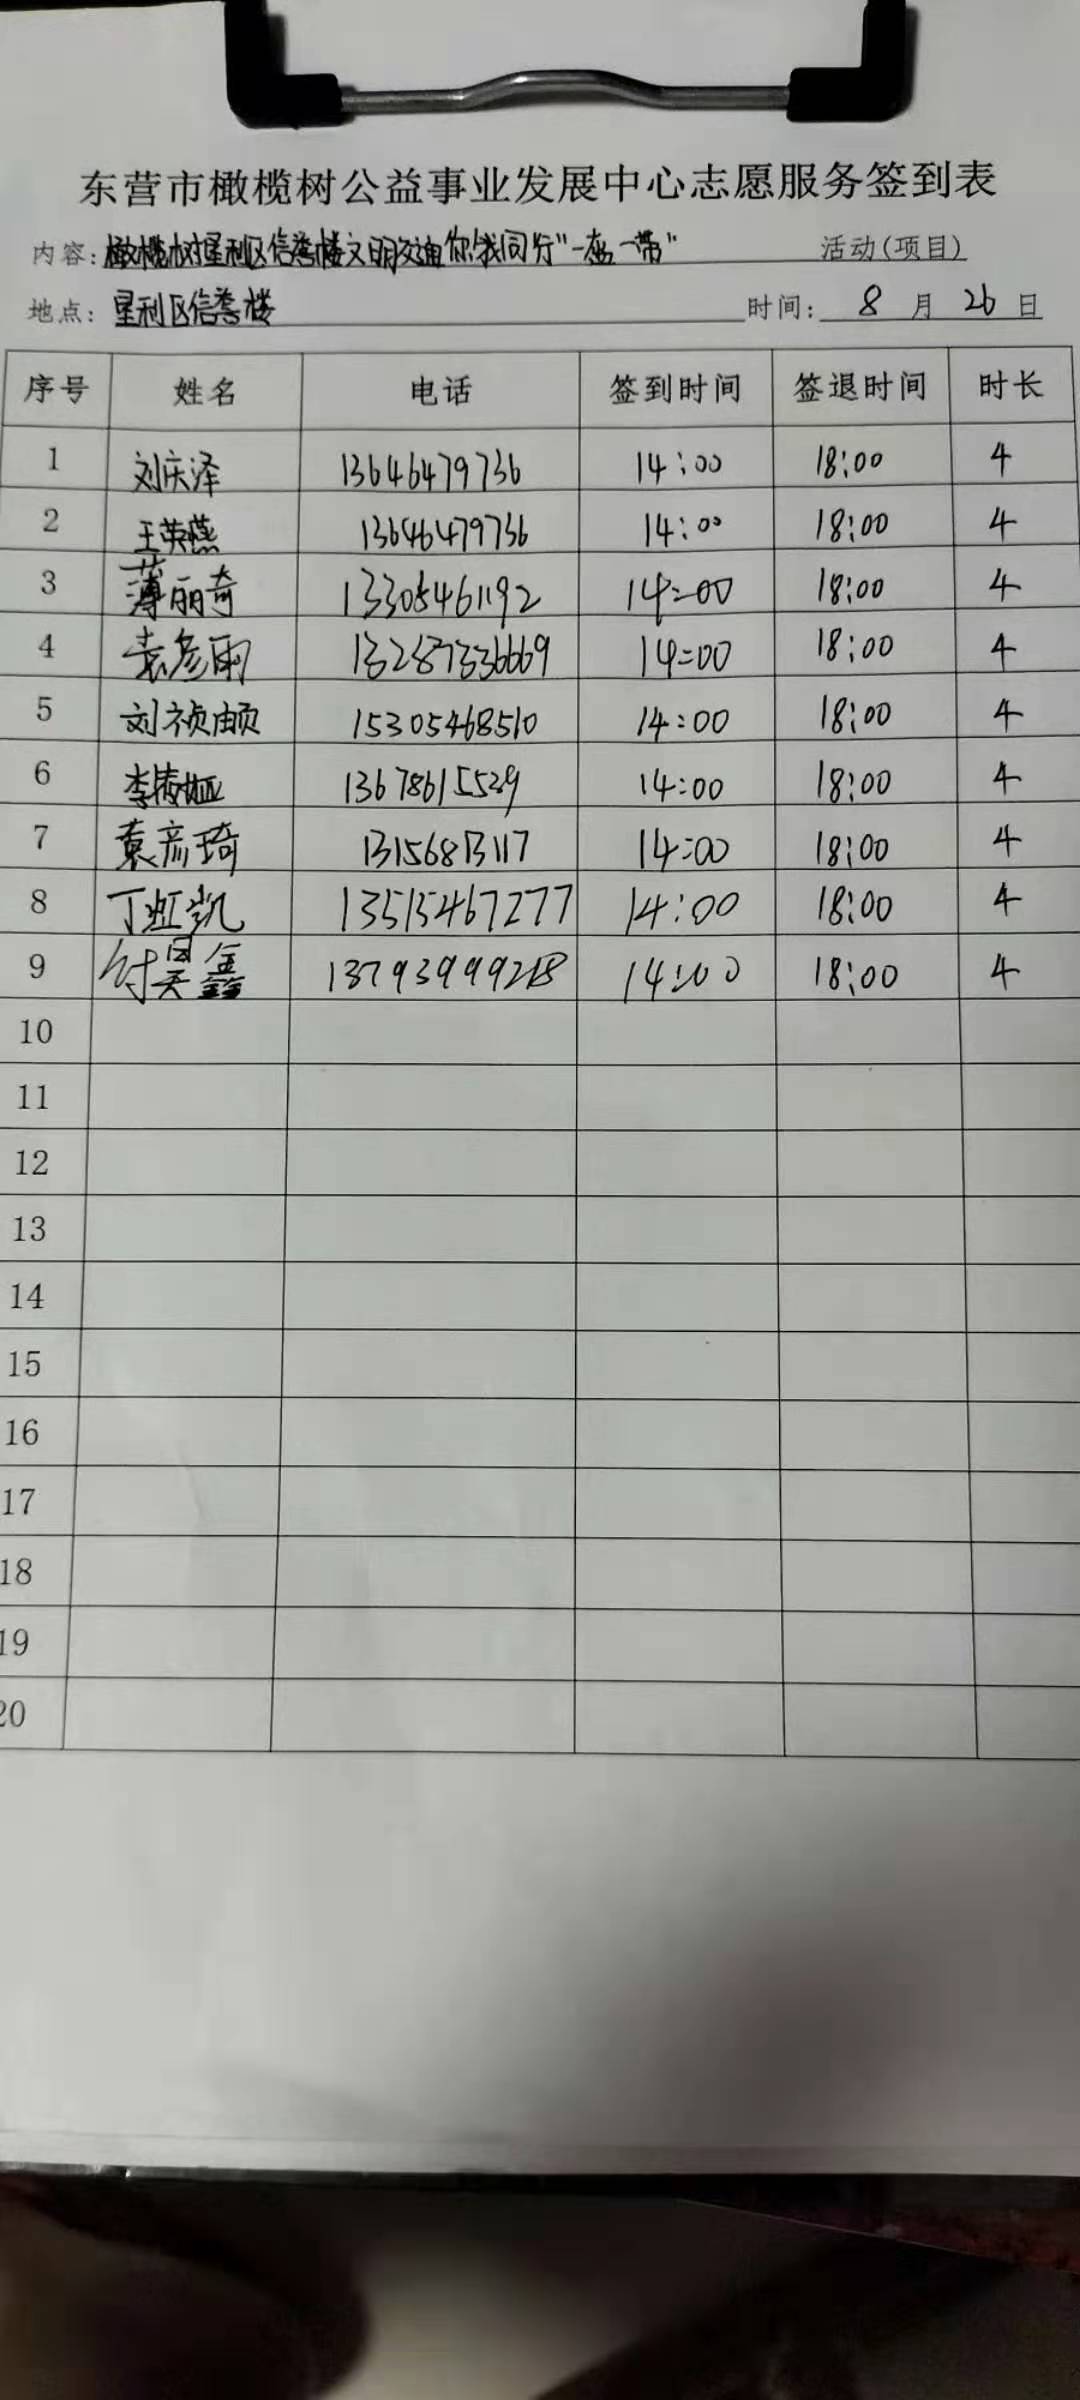 东营市橄榄树公益事业发展中心志愿服务签到表
内容:橄榄树垦利区信誉楼文明交通你我同行"一盔一带" 活动(项目)
地点:垦利区信誉楼 时间: 8 月 26 日
序号 姓名 电话 签到时间 签退时间 时长
1 刘庆泽 13646479736 14:00 18:00 4
2 王英燕 13646479736 14:00 18:00 4
3 薄丽奇 13305461192 14:00 18:00 4
4 袁彦雨 13287336669 14:00 18:00 4
5 刘祯頔 15305468510 14:00 18:00 4
6 李 13678615539 14:00 18:00 4
7 袁彦琦 13156813117 14:00 18:00 4
8 丁虹凯 13515467277 14:00 18:00 4
9 付昊鑫 13793999218 14:00 18:00 4
10
11
12
13
14
15
16
17
18
19
20